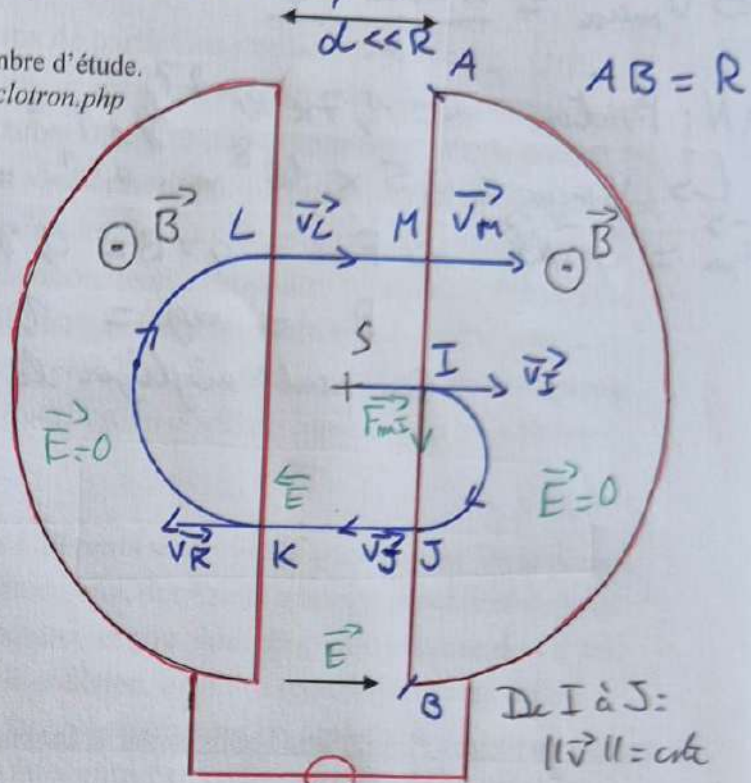 d << R
mbre d'étude.
clotron.php
A
AB = R
B⃗
L
V⃗L
M
V⃗M
B⃗
S
I
V⃗I
F⃗mI
E⃗=0
E⃗
E⃗=0
V⃗R
K
V⃗J
J
E⃗
B
De I à J:
||v⃗|| = cste